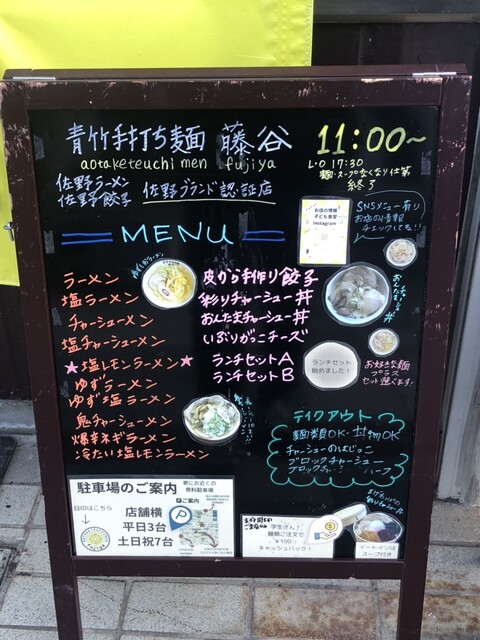 青竹手打ち麺 藤谷
aotaketeuchi men fujiya
11:00~
L・O 17:30
麺・スープなくなり仕第
終了
佐野ラーメン
佐野餃子
佐野ブランド認証店
MENU
お店の情報
子ども食堂
Instagram
SNSメニュー有り
お店の情報
チェックしてね!!
ラーメン
塩ラーメン
チャーシューメン
塩チャーシューメン
★塩レモンラーメン★
ゆずラーメン
ゆず塩ラーメン
鬼チャーシューメン
爆辛ネギラーメン
冷たい塩レモンラーメン
皮から手作り餃子
彩りチャーシュー丼
おんたまチャーシュー丼
いぶりがっこチーズ
ランチセットA
ランチセットB
ランチセット
始めました!
お好きな麺
プラス
セット選べます
テイクアウト
麺類OK・丼物OK
チャーシューのはじっこ
ブロックチャーシュー
ハーフ
駐車場のご案内
更にお近くの
無料駐車場
目印はこちら
店舗横
平日3台
土日祝7台
Pご案内
学生さん!
麺類ご注文で
¥100
キャッシュバック!
イートインは
スープ付き